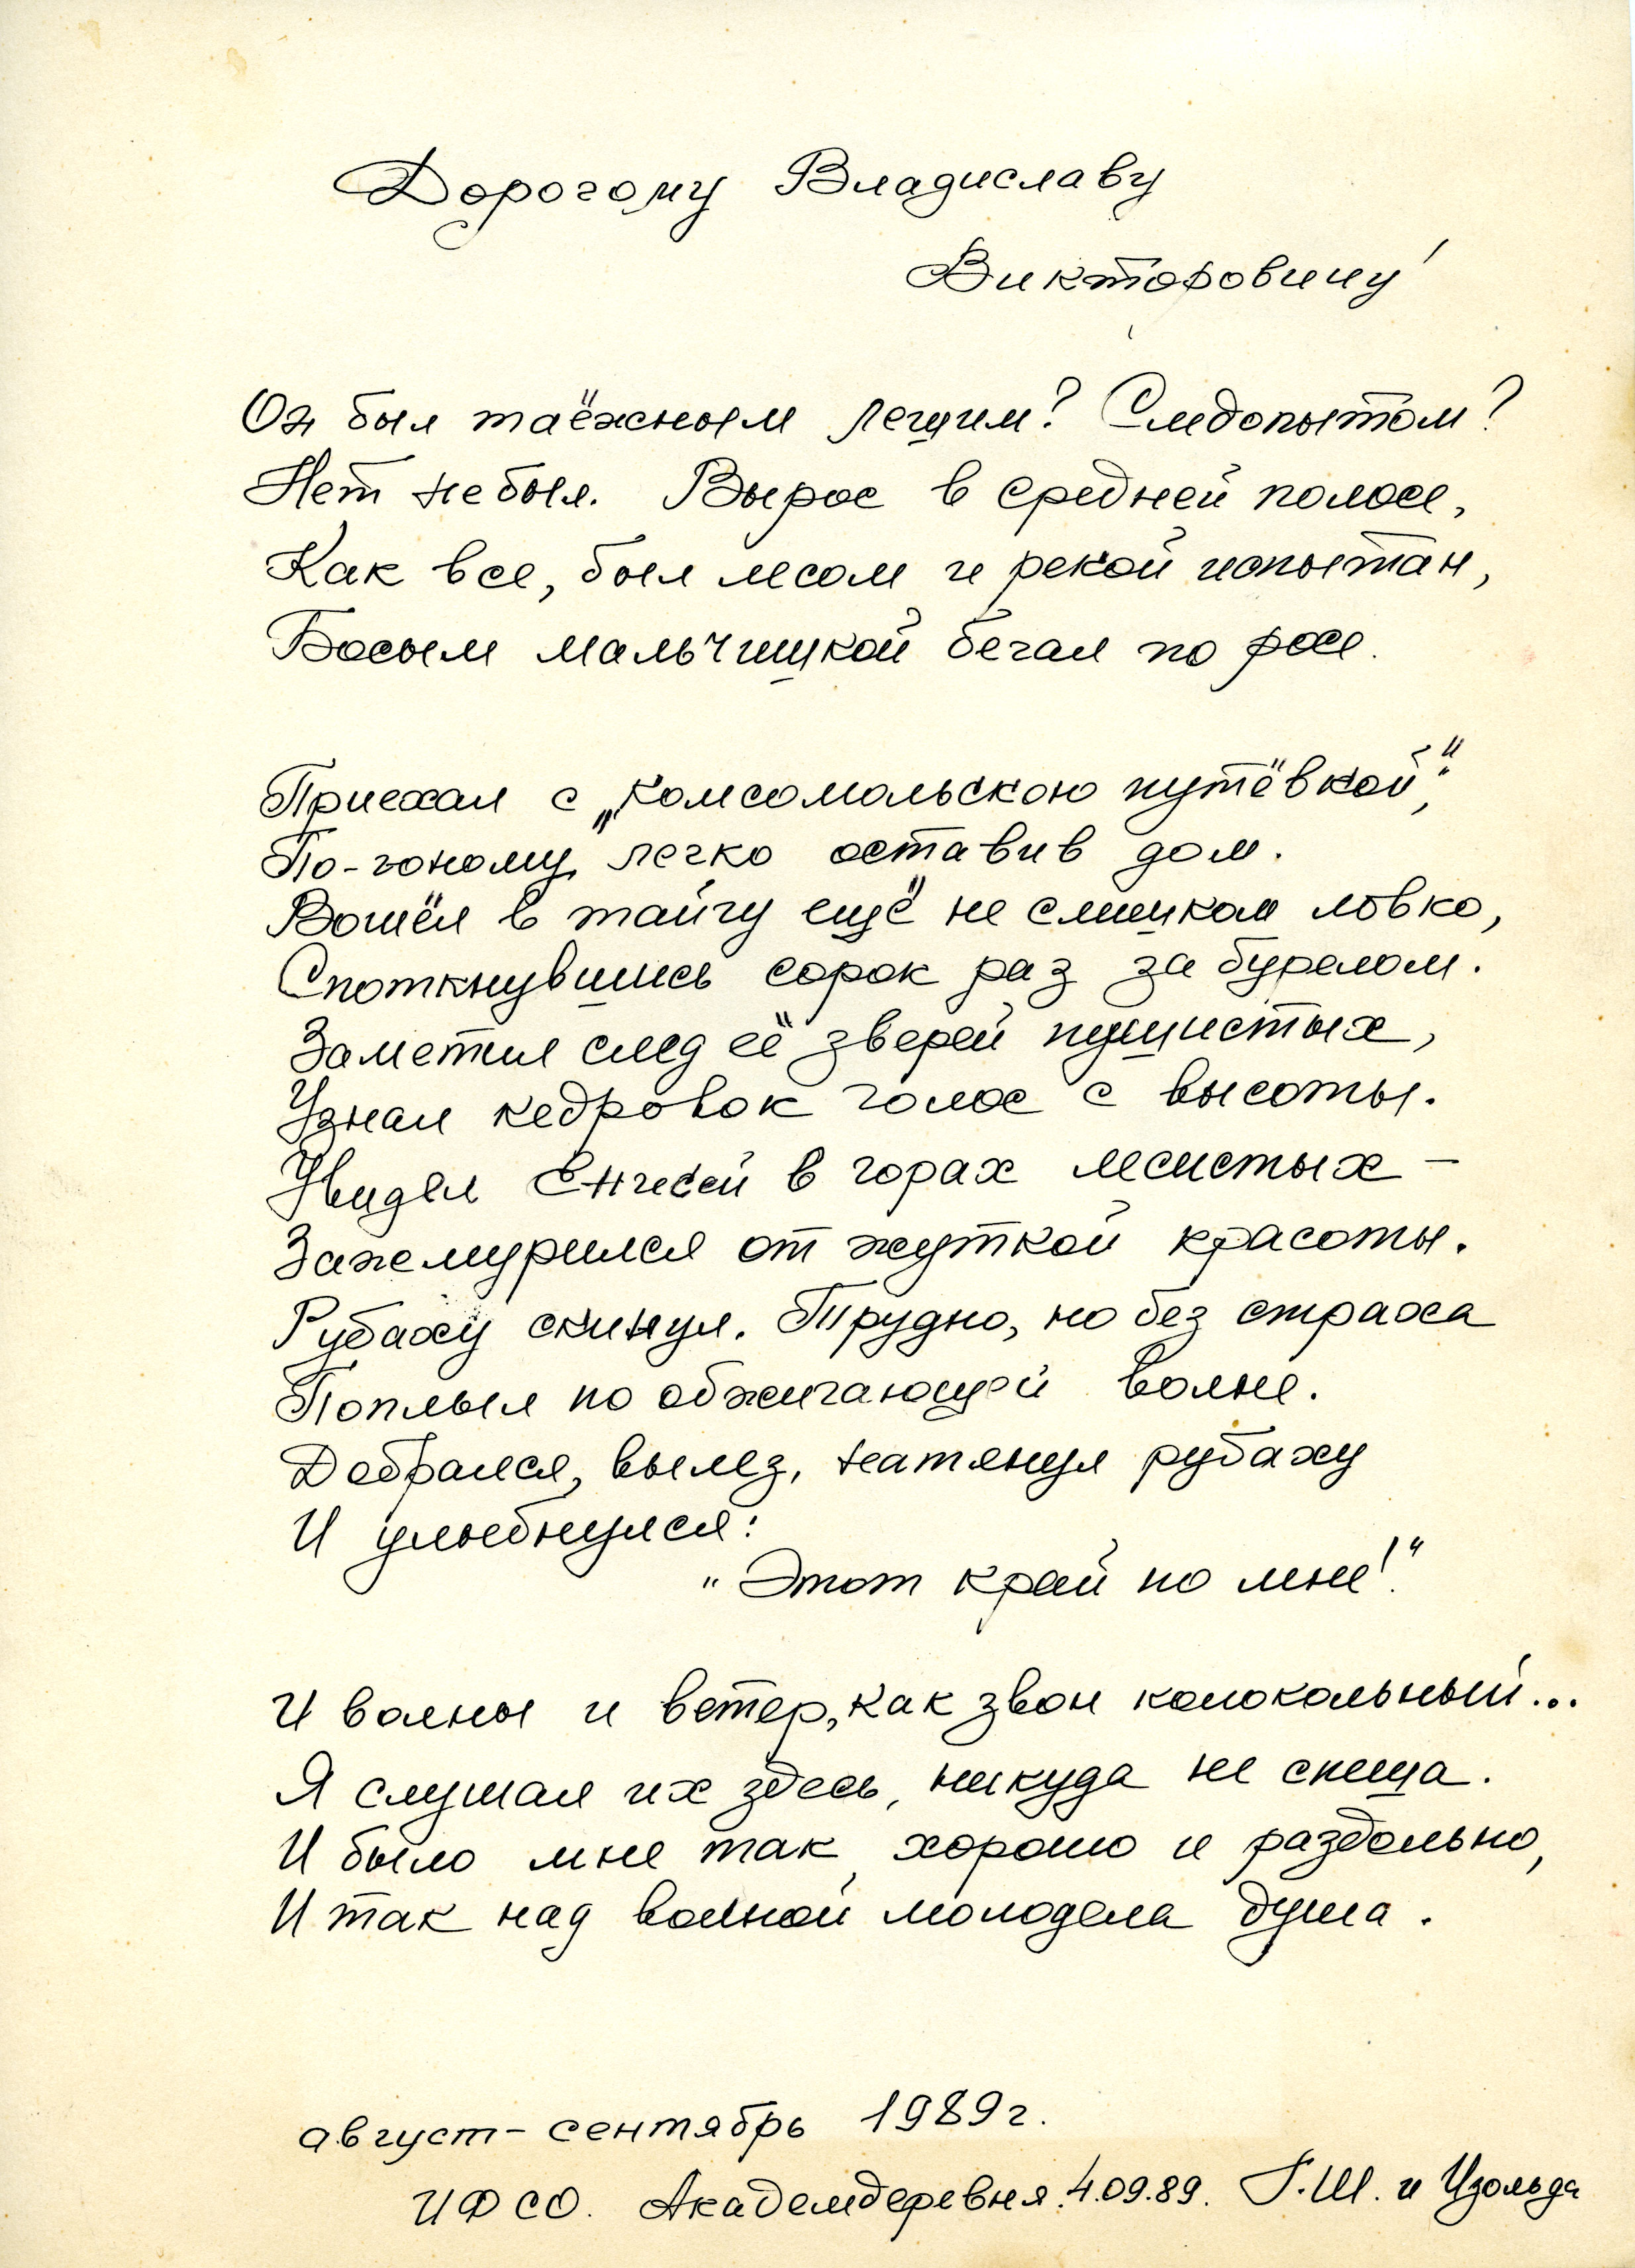 Дорогому Владиславу
Викторовичу!
Он был таёжным лешим? Следопытом?
Нет не был. Вырос в средней полосе,
Как все, был лесом и рекой испытан,
Босым мальчишкой бегал по росе.
Приехал с „комсомольскою путёвкой“,
По-юному легко оставив дом.
Вошёл в тайгу ещё не слишком ловко,
Споткнувшись сорок раз за бурелом.
Заметил след её зверей пушистых,
Узнал кедровок голос с высоты.
Увидел Енисей в горах лесистых –
Зажмурился от жуткой красоты.
Рубаху скинул. Трудно, но без страха
Поплыл по обжигающей волне.
Добрался, вылез, натянул рубаху
И улыбнулся:
"Этот край по мне!"
И волны и ветер, как звон колокольный...
Я слушал их здесь, никуда не спеша.
И было мне так хорошо и раздольно,
И так над волной молодела душа.
август - сентябрь 1989г.
ИФСО. Академдеревня. 4.09.89. Г.Ш. и Изольда